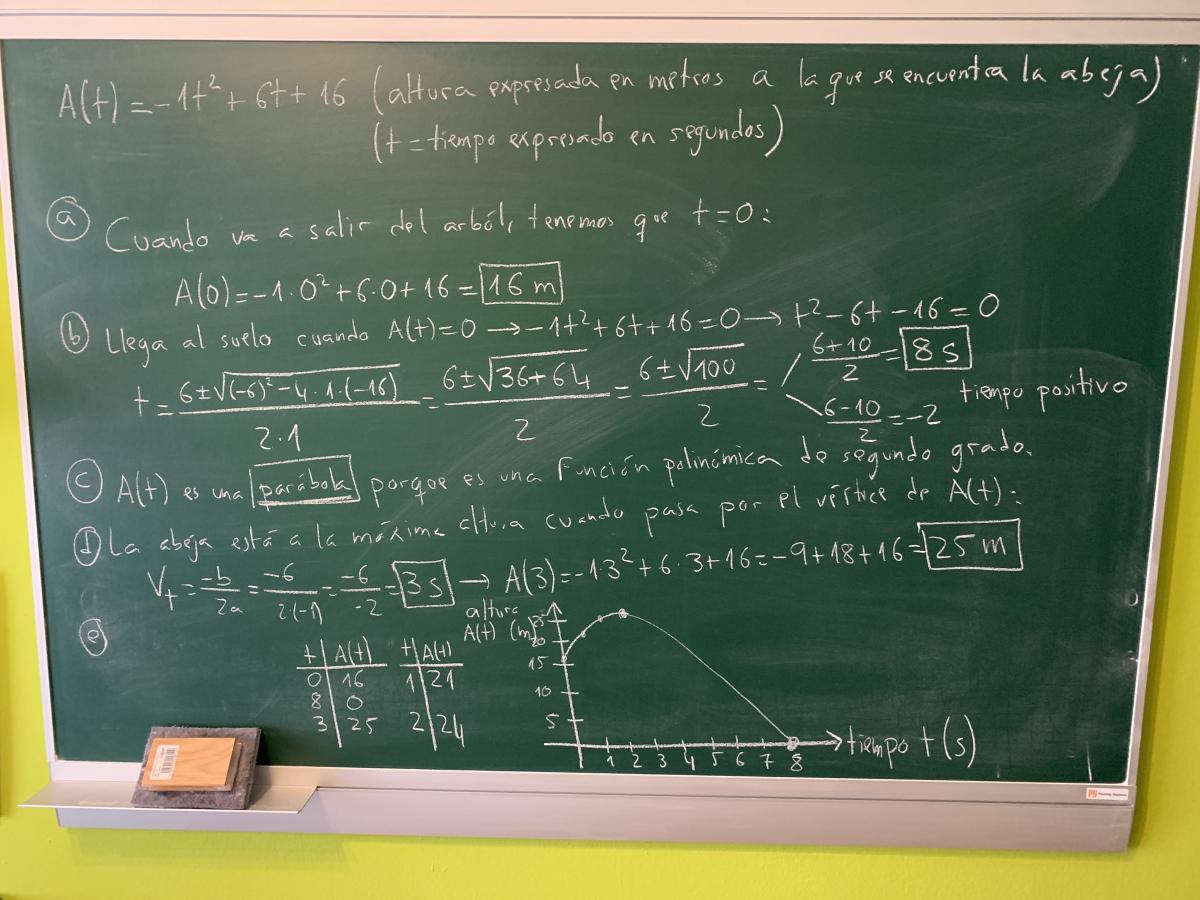 A(t) = -1t² + 6t + 16 (altura expresada en metros a la que se encuentra la abeja)
(t = tiempo expresado en segundos)
ⓐ Cuando va a salir del arból, tenemos que t=0:
A(0) = -1·0² + 6·0 + 16 = 16 m
ⓑ Llega al suelo cuando A(t)=0 → -1t² + 6t + 16 = 0 → t² - 6t - 16 = 0
t = (6±√((-6)² - 4·1·(-16)))/(2·1) = (6±√(36+64))/2 = (6±√100)/2 = (6+10)/2 = 8 s
(6-10)/2 = -2 tiempo positivo
ⓒ A(t) es una parábola porque es una función polinómica de segundo grado.
ⓓ La abeja está a la máxima altura cuando pasa por el vértice de A(t):
Vt = -b/2a = -6/2(-1) = -6/-2 = 3 s → A(3) = -1·3² + 6·3 + 16 = -9 + 18 + 16 = 25 m
ⓔ
t | A(t)
0 | 16
8 | 0
3 | 25
t | A(t)
1 | 21
2 | 24
altura
A(t) (m)
25
20
15
10
5
1 2 3 4 5 6 7 8
tiempo t (s)